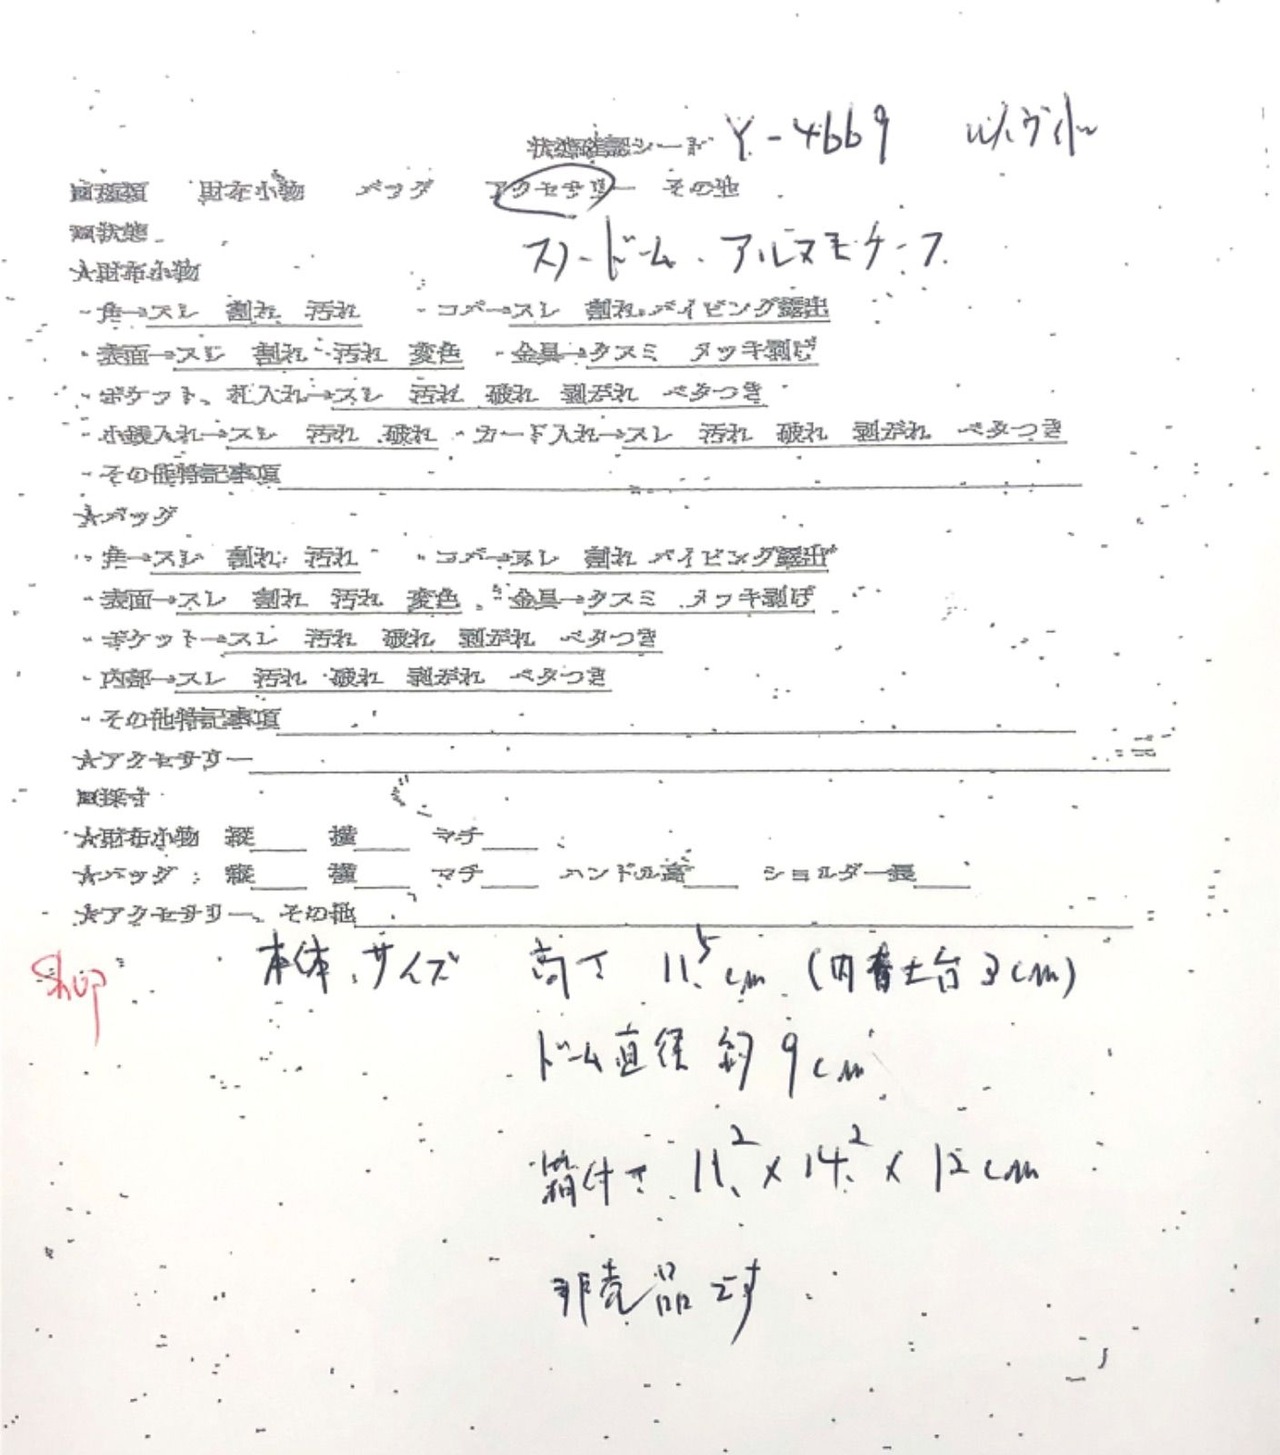 状態確認シート Y-4669 ルイ・ヴィトン
■種類 財布小物 バッグ アクセサリー その他
■状態 スノードーム・アルマモケース
★財布小物
・角→スレ 割れ 汚れ ・コバ→スレ 割れ パイピング露出
・表面→スレ 割れ 汚れ 変色 ・金具→クスミ メッキ剥げ
・ポケット、札入れ→スレ 汚れ 破れ 剥がれ ベタつき
・小銭入れ→スレ 汚れ 破れ ・カード入れ→スレ 汚れ 破れ 剥がれ ベタつき
・その他特記事項
★バッグ
・角→スレ 割れ 汚れ ・コバ→スレ 割れ パイピング露出
・表面→スレ 割れ 汚れ 変色 ・金具→クスミ メッキ剥げ
・ポケット→スレ 汚れ 破れ 剥がれ ベタつき
・内部→スレ 汚れ 破れ 剥がれ ベタつき
・その他特記事項
★アクセサリー
■採寸
★財布小物 縦 横 マチ
★バッグ: 縦 横 マチ ハンドル高 ショルダー長
★アクセサリー、その他
shop 本体サイズ 高さ 11.5cm (内 土台3cm)
ドーム直径 約9cm
箱付き 11.2×14.2×12cm
非売品です